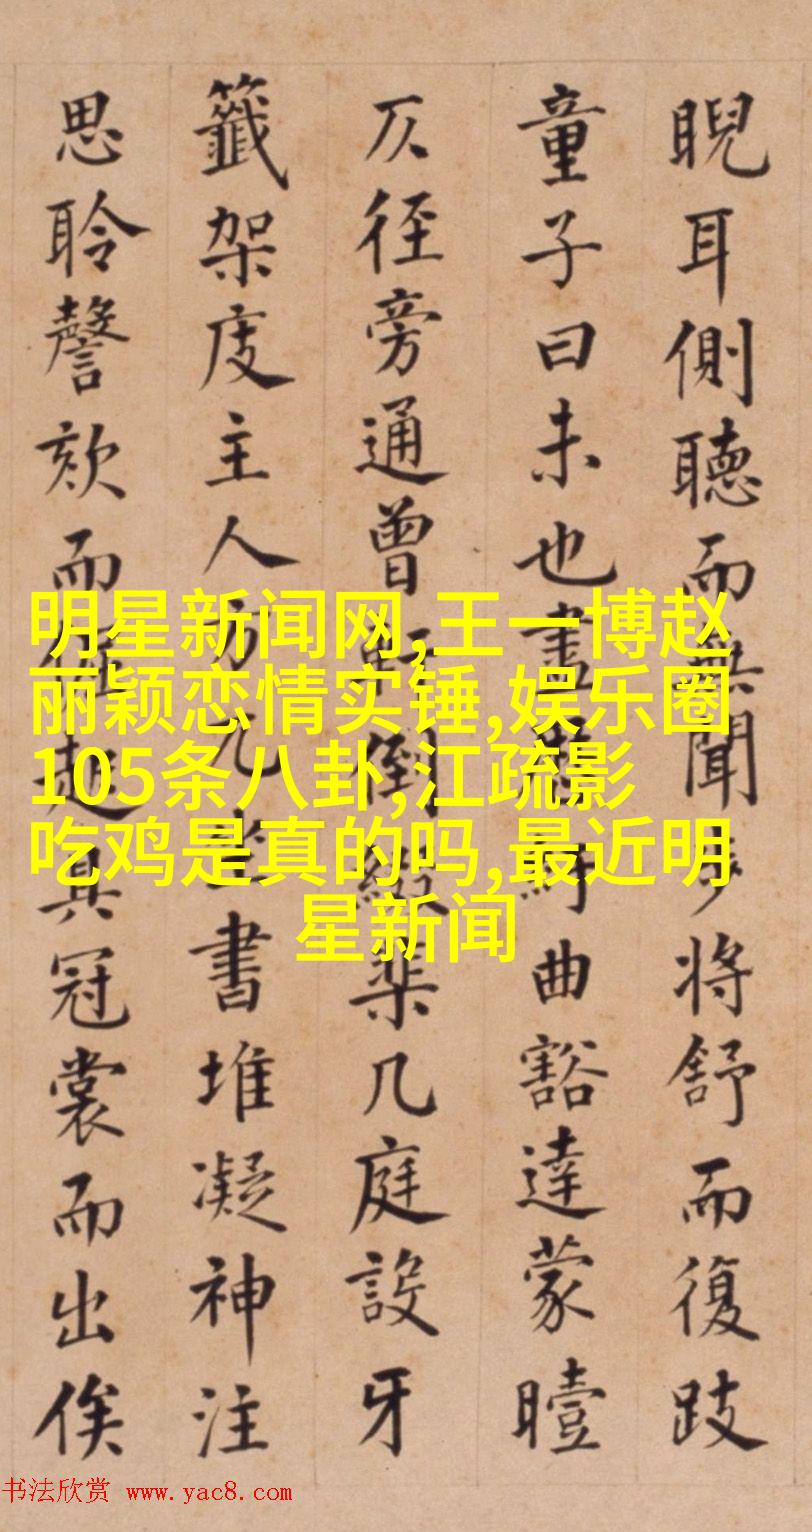 睨耳側聽而無聞步將舒而復跂
童子曰未也曲豁達蒙曀
仄徑旁通曾軒倒綴棐几庭設牙
籤架庋主人方兀坐書堆凝神注
思聆謦欬而起具冠裳而出俟
明星新闻网,王一博赵
丽颖恋情实锤,娱乐圈
105条八卦,江疏影
吃鸡是真的吗,最近明
星新闻
书法欣赏 www.yac8.com